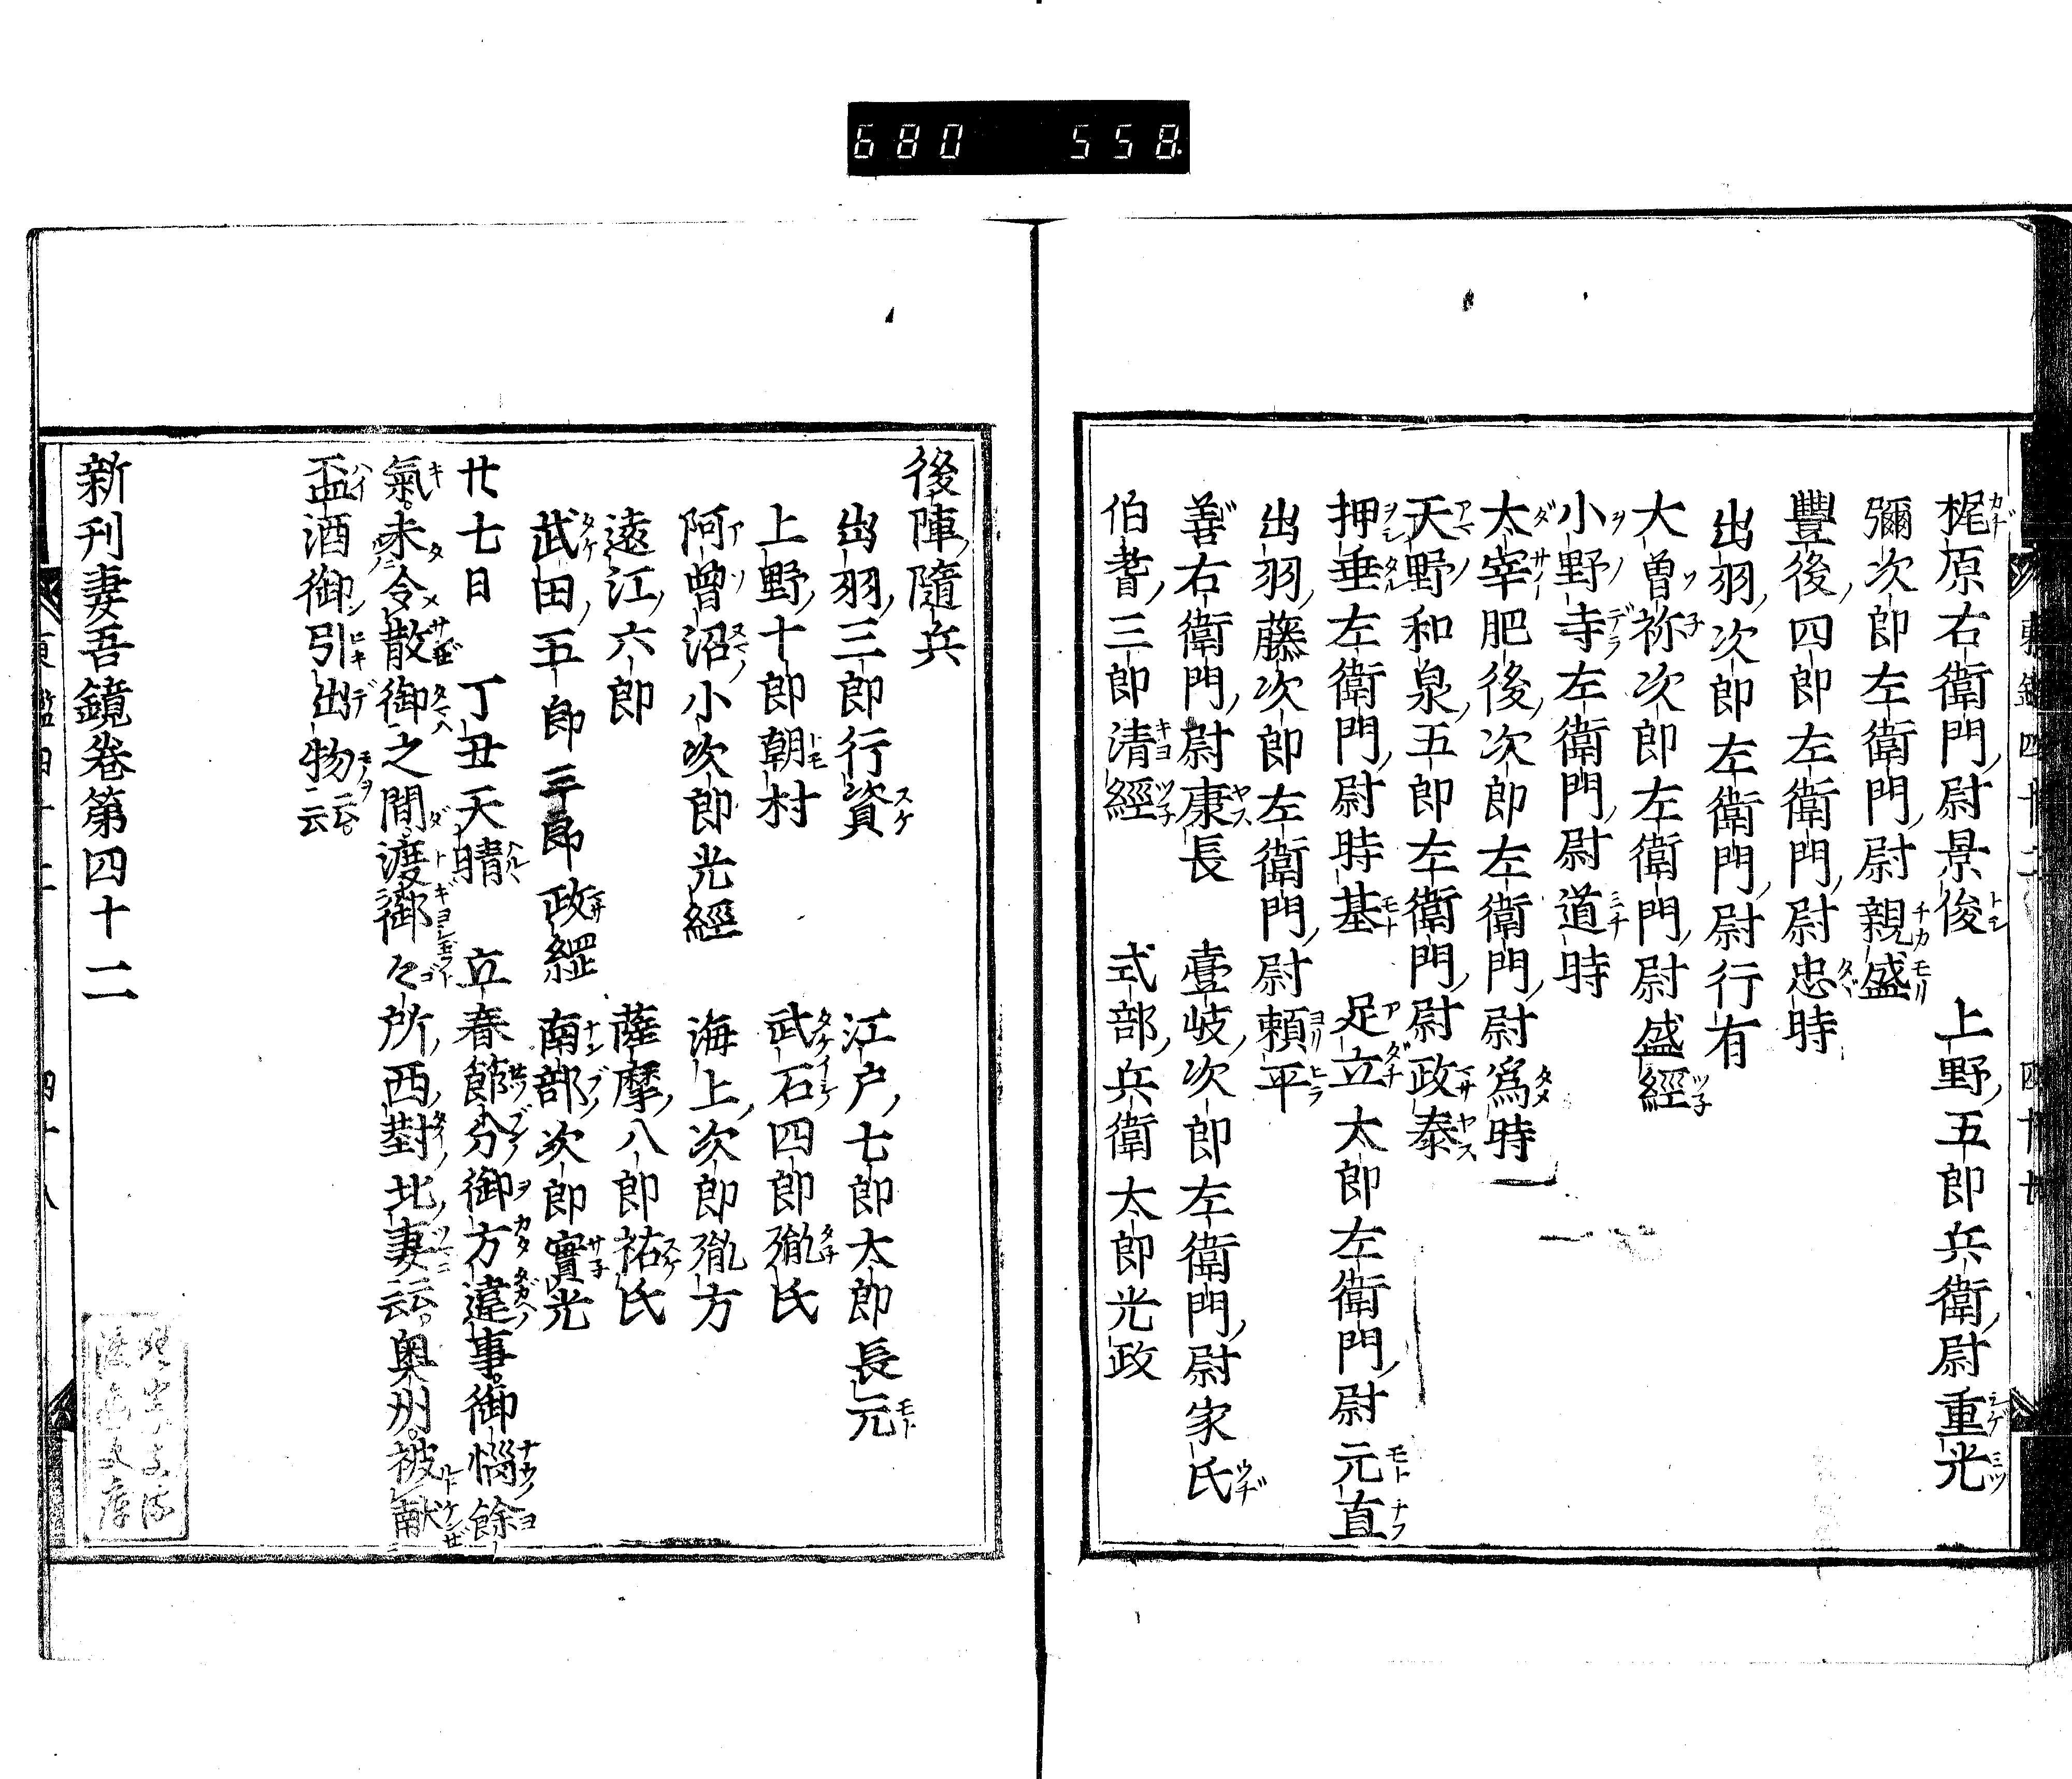 680 558.
梶原右衛門尉景俊 上野五郎兵衛尉重光
彌次郎左衛門尉親盛
豐後四郎左衛門尉忠時
出羽次郎左衛門尉行有
大曽祢次郎左衛門尉盛經
小野寺左衛門尉道時
太宰肥後次郎左衛門尉爲時
天野和泉五郎左衛門尉政泰
押垂左衛門尉時基 足立太郎左衛門尉元直
出羽藤次郎左衛門尉頼平
善右衛門尉康長 壹岐次郎左衛門尉家氏
伯耆三郎清經 式部兵衛太郎光政
後陣隨兵
出羽三郎行資 江戸七郎太郎長元
上野十郎朝村 武石四郎胤氏
阿曾沼小次郎光經 海上次郎胤方
遠江六郎 薩摩八郎祐氏
武田五郎三郎政綱 南部次郎實光
廿七日 丁丑天晴 立春節分御方違事御惱餘
氣未令散御之間渡御々所西對北妻云云奥州被献
盃酒御引出物云云
新刊吾妻鏡卷第四十二